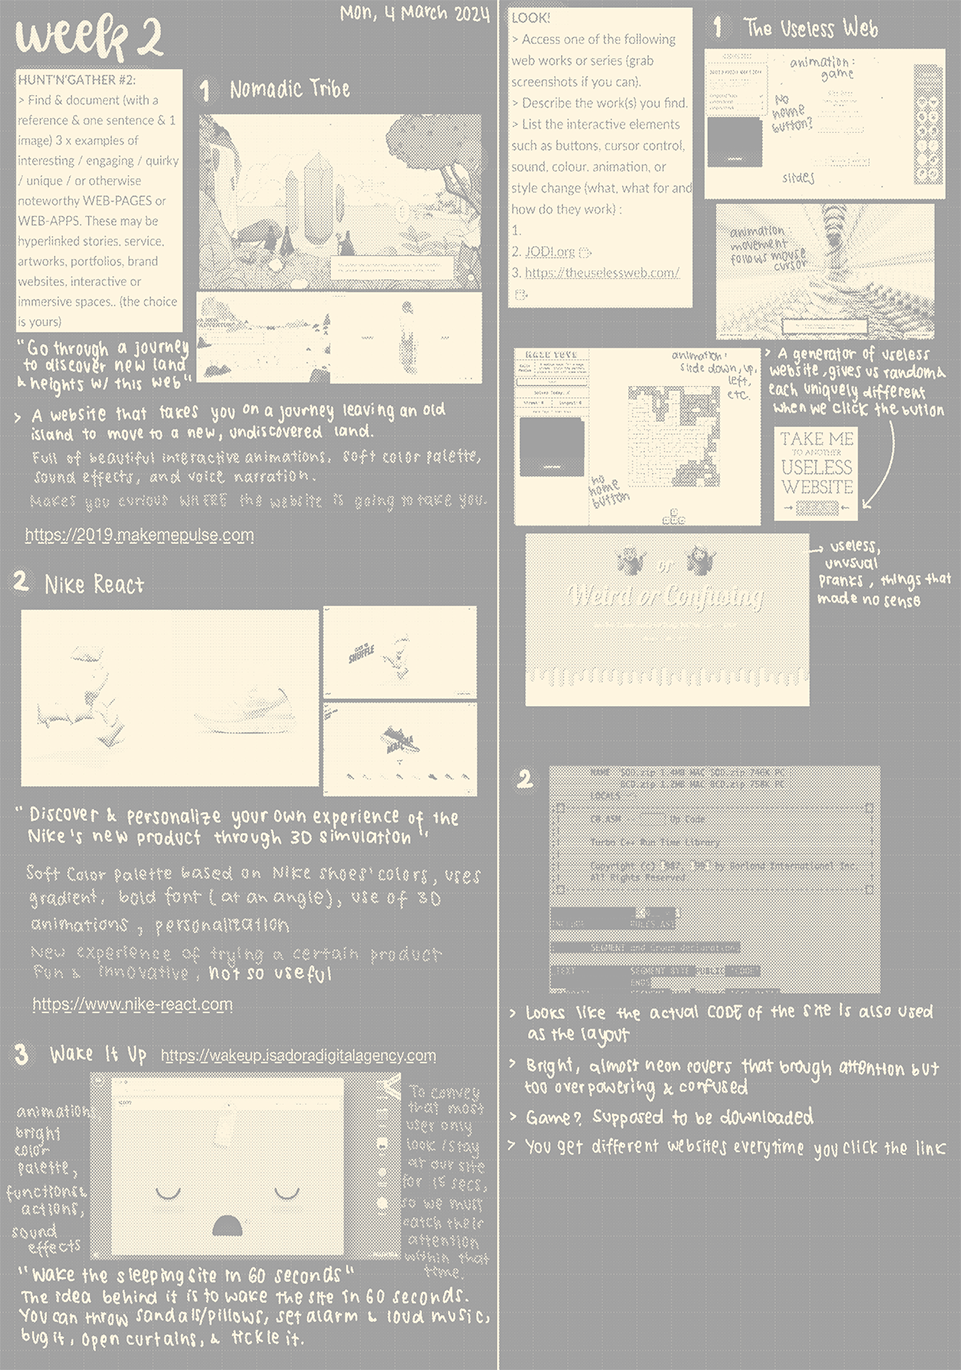 Mon, 4 March 2024
week 2
HUNT'N'GATHER #2:
> Find & document (with a
reference & one sentence & 1
image) 3 x examples of
interesting / engaging / quirky
/ unique / or otherwise
noteworthy WEB-PAGES or
WEB-APPS. These may be
hyperlinked stories, service,
artworks, portfolios, brand
websites, interactive or
immersive spaces.. (the choice
is yours)
1 Nomadic Tribe
"Go through a journey
to discover new land
& heights w/ this web"
> A website that takes you on a journey leaving an old
island to move to a new, undiscovered land.
Full of beautiful interactive animations, soft color palette,
sound effects, and voice narration.
Makes you curious WHERE the website is going to take you.
https://2019.makemepulse.com
2 Nike React
CLICK TO
SHUFFLE
"Discover & personalize your own experience of the
Nike's new product through 3D simulation"
Soft Color palette based on Nike shoes' colors, uses
gradient, bold font (at an angle), use of 3D
animations, personalization
New experience of trying a certain product
Fun & innovative, not so useful
https://www.nike-react.com
3 Wake It Up https://wakeup.isadoradigitalagency.com
animations,
bright
color
palette,
functions&
actions,
sound
effects
To convey
that most
user only
look/stay
at our site
for 15 secs,
so we must
catch their
attention
within that
time.
"Wake the sleeping site in 60 seconds"
The idea behind it is to wake the site in 60 seconds.
You can throw sandals/pillows, set alarm & loud music,
bug it, open curtains, & tickle it.
LOOK!
> Access one of the following
web works or series (grab
screenshots if you can).
> Describe the work(s) you find.
> List the interactive elements
such as buttons, cursor control,
sound, colour, animation, or
style change (what, what for and
how do they work) :
1.
2. JODI.org
3. https://theuselessweb.com/
1 The Useless Web
animation:
game
No
home
button?
slides
animation
movement
follows mouse
cursor
MAZE TOYS
animation:
slide down, up,
left,
etc.
no
home
button
> A generator of useless
website, gives us random &
each uniquely different
when we click the button
TAKE ME
TO ANOTHER
USELESS
WEBSITE
or
Weird or Confusing
useless,
unusual
pranks, things that
made no sense
2
NAME SOD.zip 1.4MB MAC SOD.zip 746K PC
BCD.zip 1.2MB MAC BCD.zip 758K PC
LOCALS
C0.ASM -- Up Code
Turbo C++ Run Time Library
Copyright (c) 1987, 1991 by Borland International Inc.
All Rights Reserved.
SEGMENT and Group declarations
_TEXT SEGMENT BYTE PUBLIC 'CODE'
ENDS
> Looks like the actual CODE of the site is also used
as the layout
> Bright, almost neon covers that brough attention but
too overpowering & confused
> Game? Supposed to be downloaded
> You get different websites everytime you click the link